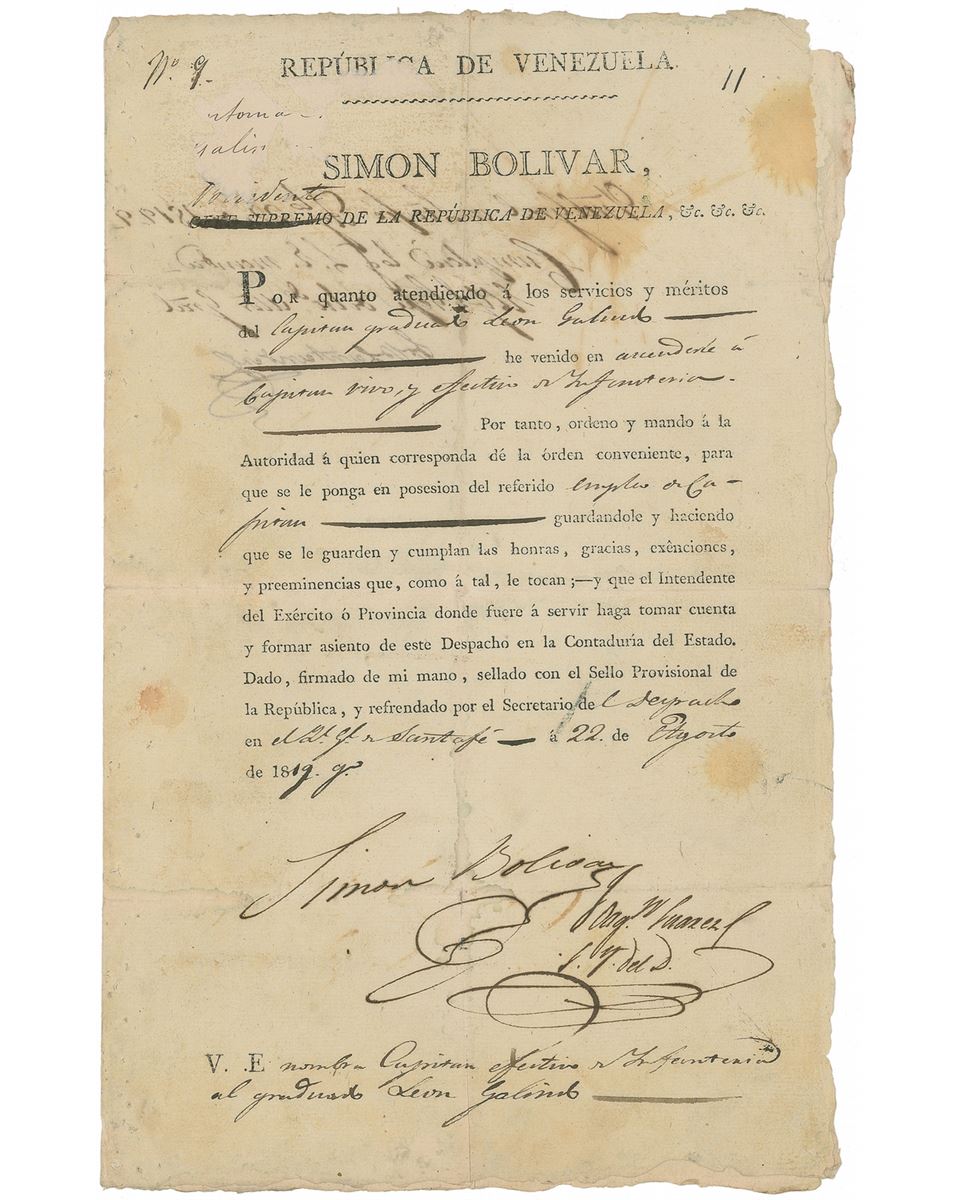 Nº 9.
REPÚBLICA DE VENEZUELA.
11
SIMON BOLIVAR,
Presidente
GEFE SUPREMO DE LA REPÚBLICA DE VENEZUELA, &c. &c. &c.
POR quanto atendiendo á los servicios y méritos
del Capitan graduado Leon Galindo
he venido en ascenderle á
Capitan vivo, y efectivo de Infanteria.
Por tanto, ordeno y mando á la
Autoridad á quien corresponda dé la órden conveniente, para
que se le ponga en posesion del referido empleo de Ca-
pitan guardandole y haciendo
que se le guarden y cumplan las honras, gracias, exênciones,
y preeminencias que, como á tal, le tocan;—y que el Intendente
del Exército ó Provincia donde fuere á servir haga tomar cuenta
y formar asiento de este Despacho en la Contaduría del Estado.
Dado, firmado de mi mano, sellado con el Sello Provisional de
la República, y refrendado por el Secretario de l Despacho
en el Qt. Gl. de Santafé á 22. de Agosto
de 1819. 9º
Simon Bolivar
V. E nombra Capitan efectivo de Infanteria
al graduado Leon Galindo